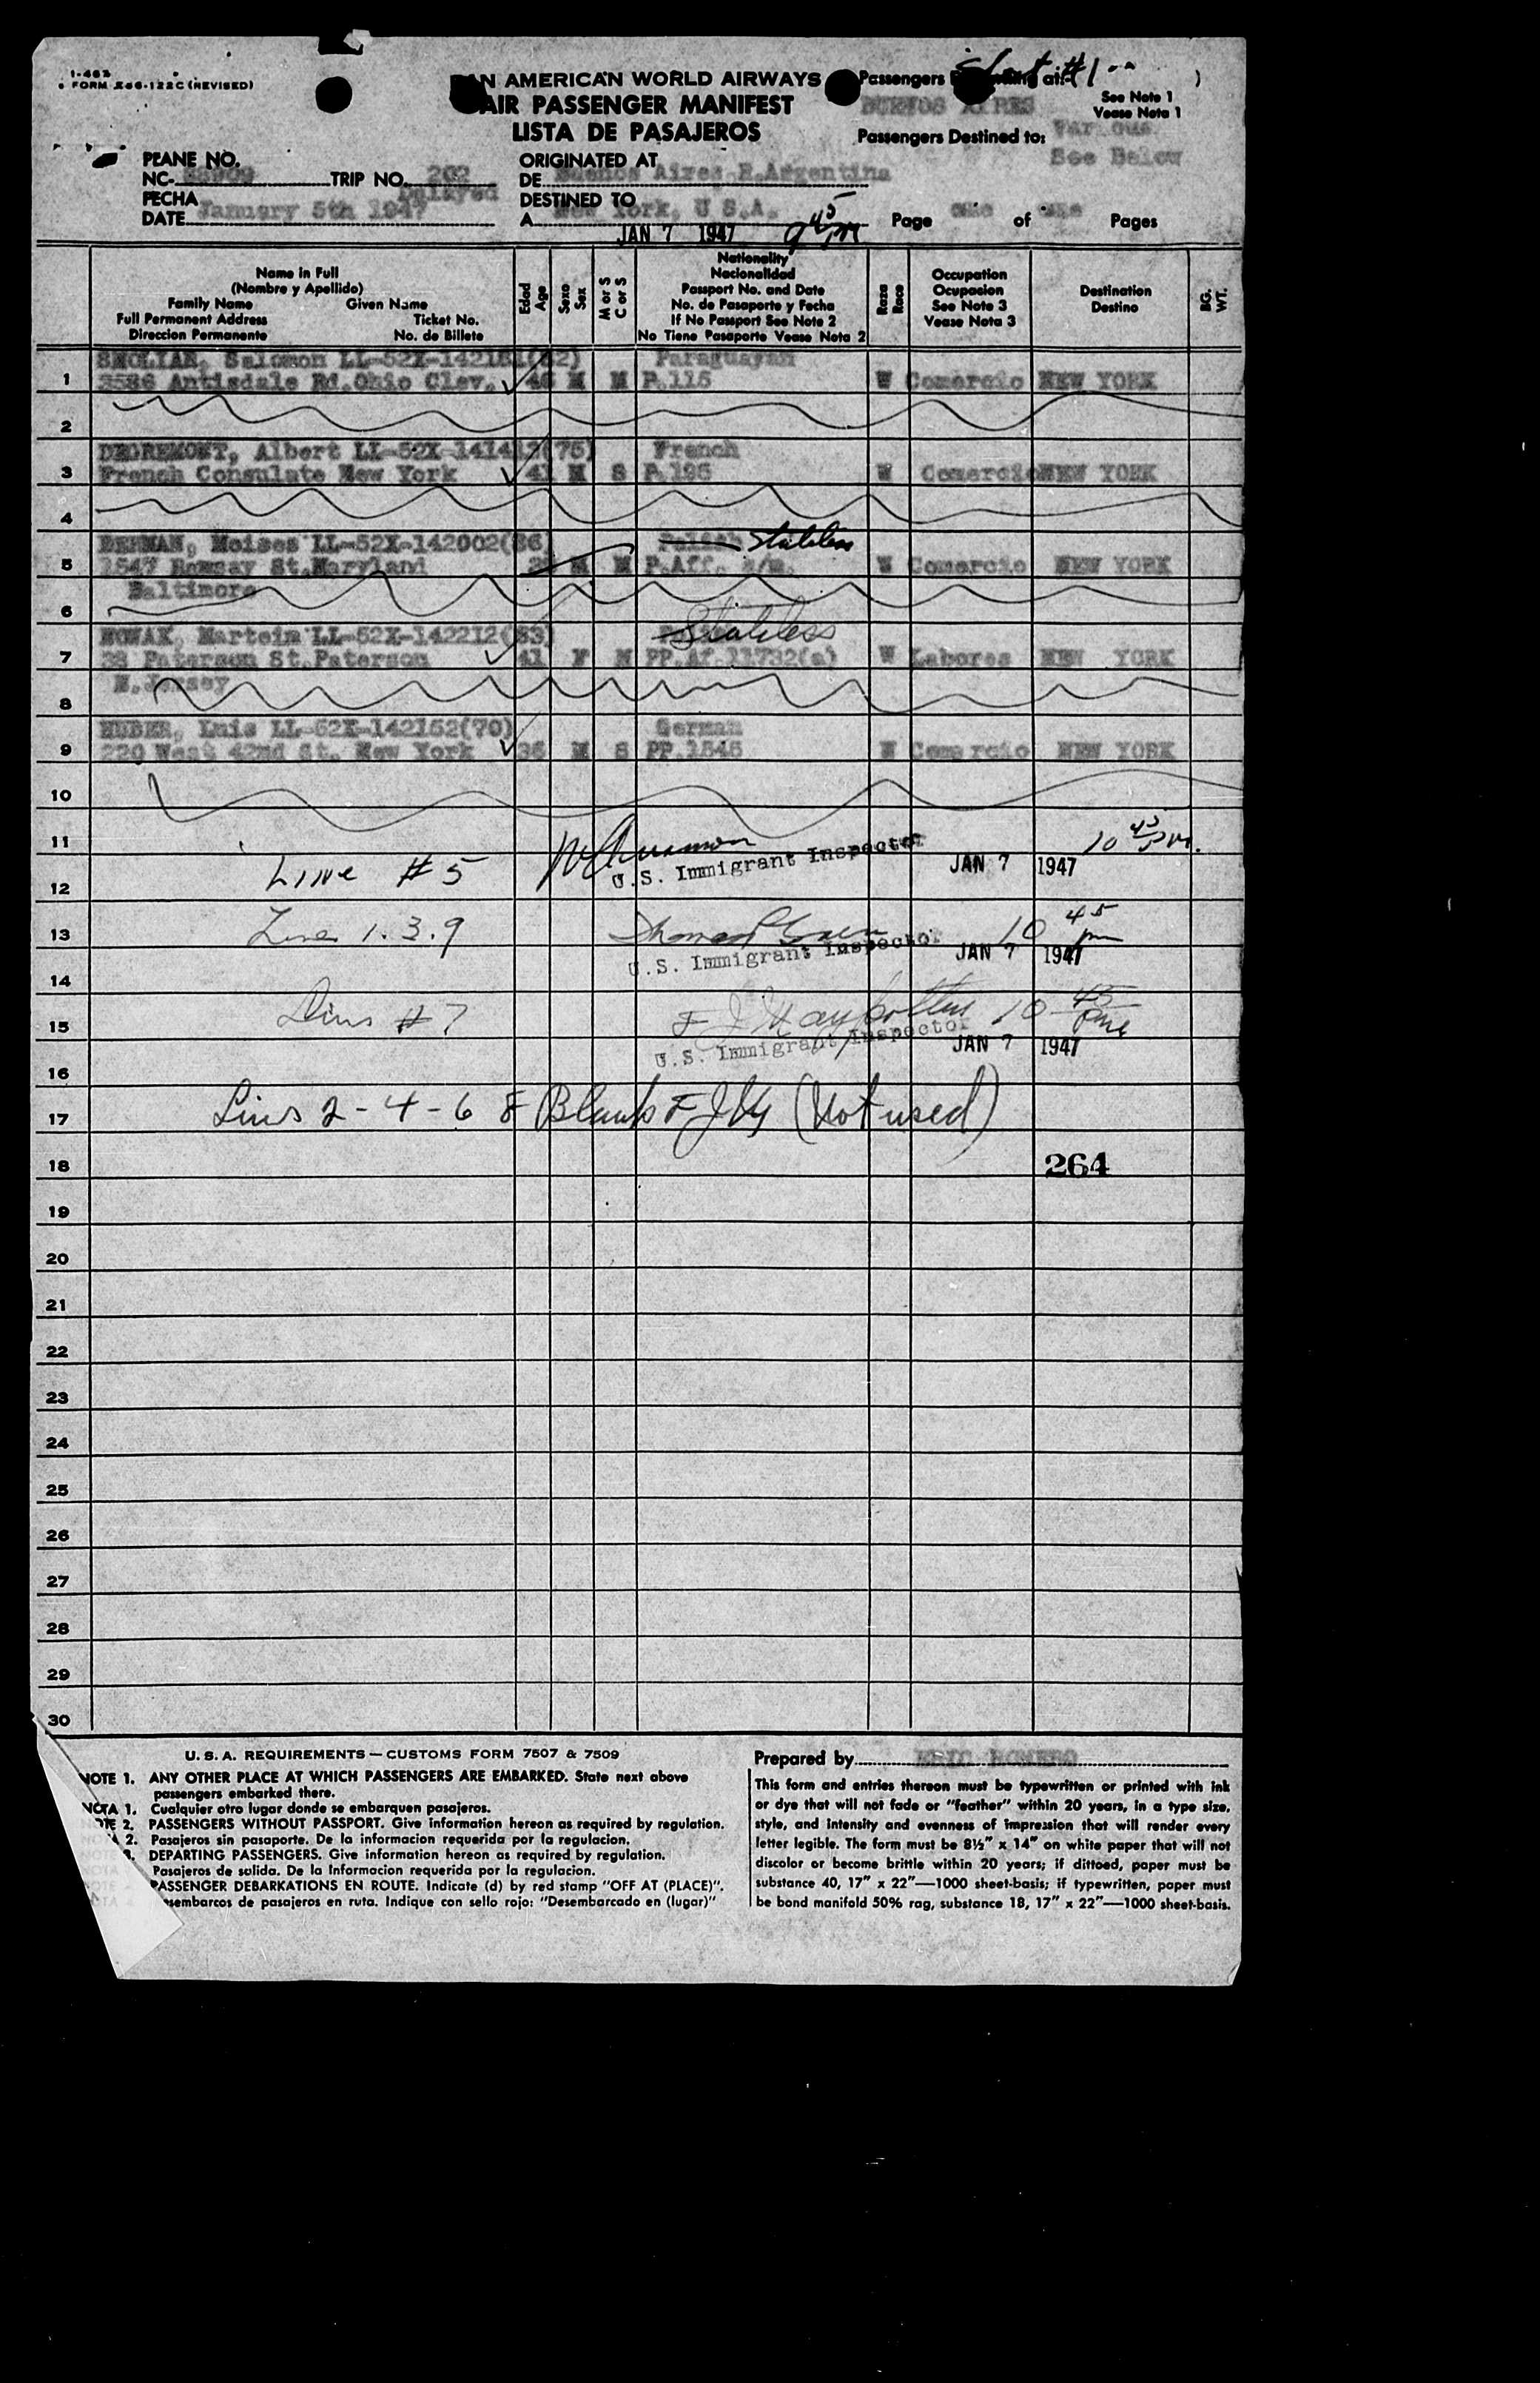 I-462
FORM 266-122C (REVISED)
PAN AMERICAN WORLD AIRWAYS
AIR PASSENGER MANIFEST
LISTA DE PASAJEROS
Sheet #1
Passengers at:
BUENOS AIRES
See Note 1
Vease Nota 1
Passengers Destined to: Various
See Below
PLANE NO.
NC- TRIP NO. 202
Delayed
FECHA
DATE January 5th 1947
ORIGINATED AT
DE Buenos Aires R.Argentina
DESTINED TO
A New York, U S.A.
JAN 7 1947 9 45 PM
Page one of one Pages
Name in Full
(Nombre y Apellido)
Family Name Given Name
Full Permanent Address Ticket No.
Direccion Permanente No. de Billete
Edad
Age
Sexo
Sex
M or S
C or S
Nationality
Nacionalidad
Passport No. and Date
No. de Pasaporte y Fecha
If No Passport See Note 2
No Tiene Pasaporte Vease Nota 2
Raza
Race
Occupation
Ocupacion
See Note 3
Vease Nota 3
Destination
Destino
BG.
WT.
SMOLIAN, Salomon LL-52X-142181(82) Paraguayan
1 3586 Antisdale Rd.Ohio Clev. 46 M M P.115 W Comercio NEW YORK
2
DEGREMONT, Albert LL-52X-141412(75) French
3 French Consulate New York 41 M S P.195 W Comercio NEW YORK
4
BERMAN, Moises LL-52X-142002(86) Polish Stateless
5 1547 Ramsay St.Maryland M M P.Aff. s/n. W Comercio NEW YORK
Baltimore
6
NOWAK, Martein LL-52X-142212(83) Stateless
7 38 Paterson St.Paterson 41 F M PP.Af.11732(a) W Labores NEW YORK
N.Jersey
8
HUBER, Luis LL-52X-142152(70) German
9 220 West 42nd St. New York 36 M S PP.1546 W Comercio NEW YORK
10
11 10 45 PM.
12 Line #5 U.S. Immigrant Inspector JAN 7 1947
13 Line 1.3.9 10 45 pm
U.S. Immigrant Inspector JAN 7 1947
14
15 Line #7 10 45 pm
U.S. Immigrant Inspector JAN 7 1947
16
17 Lines 2-4-6 8 Blank FJM (Not used)
18 264
19
20
21
22
23
24
25
26
27
28
29
30
U. S. A. REQUIREMENTS — CUSTOMS FORM 7507 & 7509
NOTE 1. ANY OTHER PLACE AT WHICH PASSENGERS ARE EMBARKED. State next above
passengers embarked there.
NOTA 1. Cualquier otro lugar donde se embarquen pasajeros.
NOTE 2. PASSENGERS WITHOUT PASSPORT. Give information hereon as required by regulation.
2. Pasajeros sin pasaporte. De la informacion requerida por la regulacion.
3. DEPARTING PASSENGERS. Give information hereon as required by regulation.
Pasajeros de salida. De la Informacion requerida por la regulacion.
PASSENGER DEBARKATIONS EN ROUTE. Indicate (d) by red stamp "OFF AT (PLACE)".
Desembarcos de pasajeros en ruta. Indique con sello rojo: "Desembarcado en (lugar)"
Prepared by ERIC ROMERO
This form and entries thereon must be typewritten or printed with ink
or dye that will not fade or "feather" within 20 years, in a type size,
style, and intensity and evenness of impression that will render every
letter legible. The form must be 8½" x 14" on white paper that will not
discolor or become brittle within 20 years; if dittoed, paper must be
substance 40, 17" x 22"—1000 sheet-basis; if typewritten, paper must
be bond manifold 50% rag, substance 18, 17" x 22"—1000 sheet-basis.